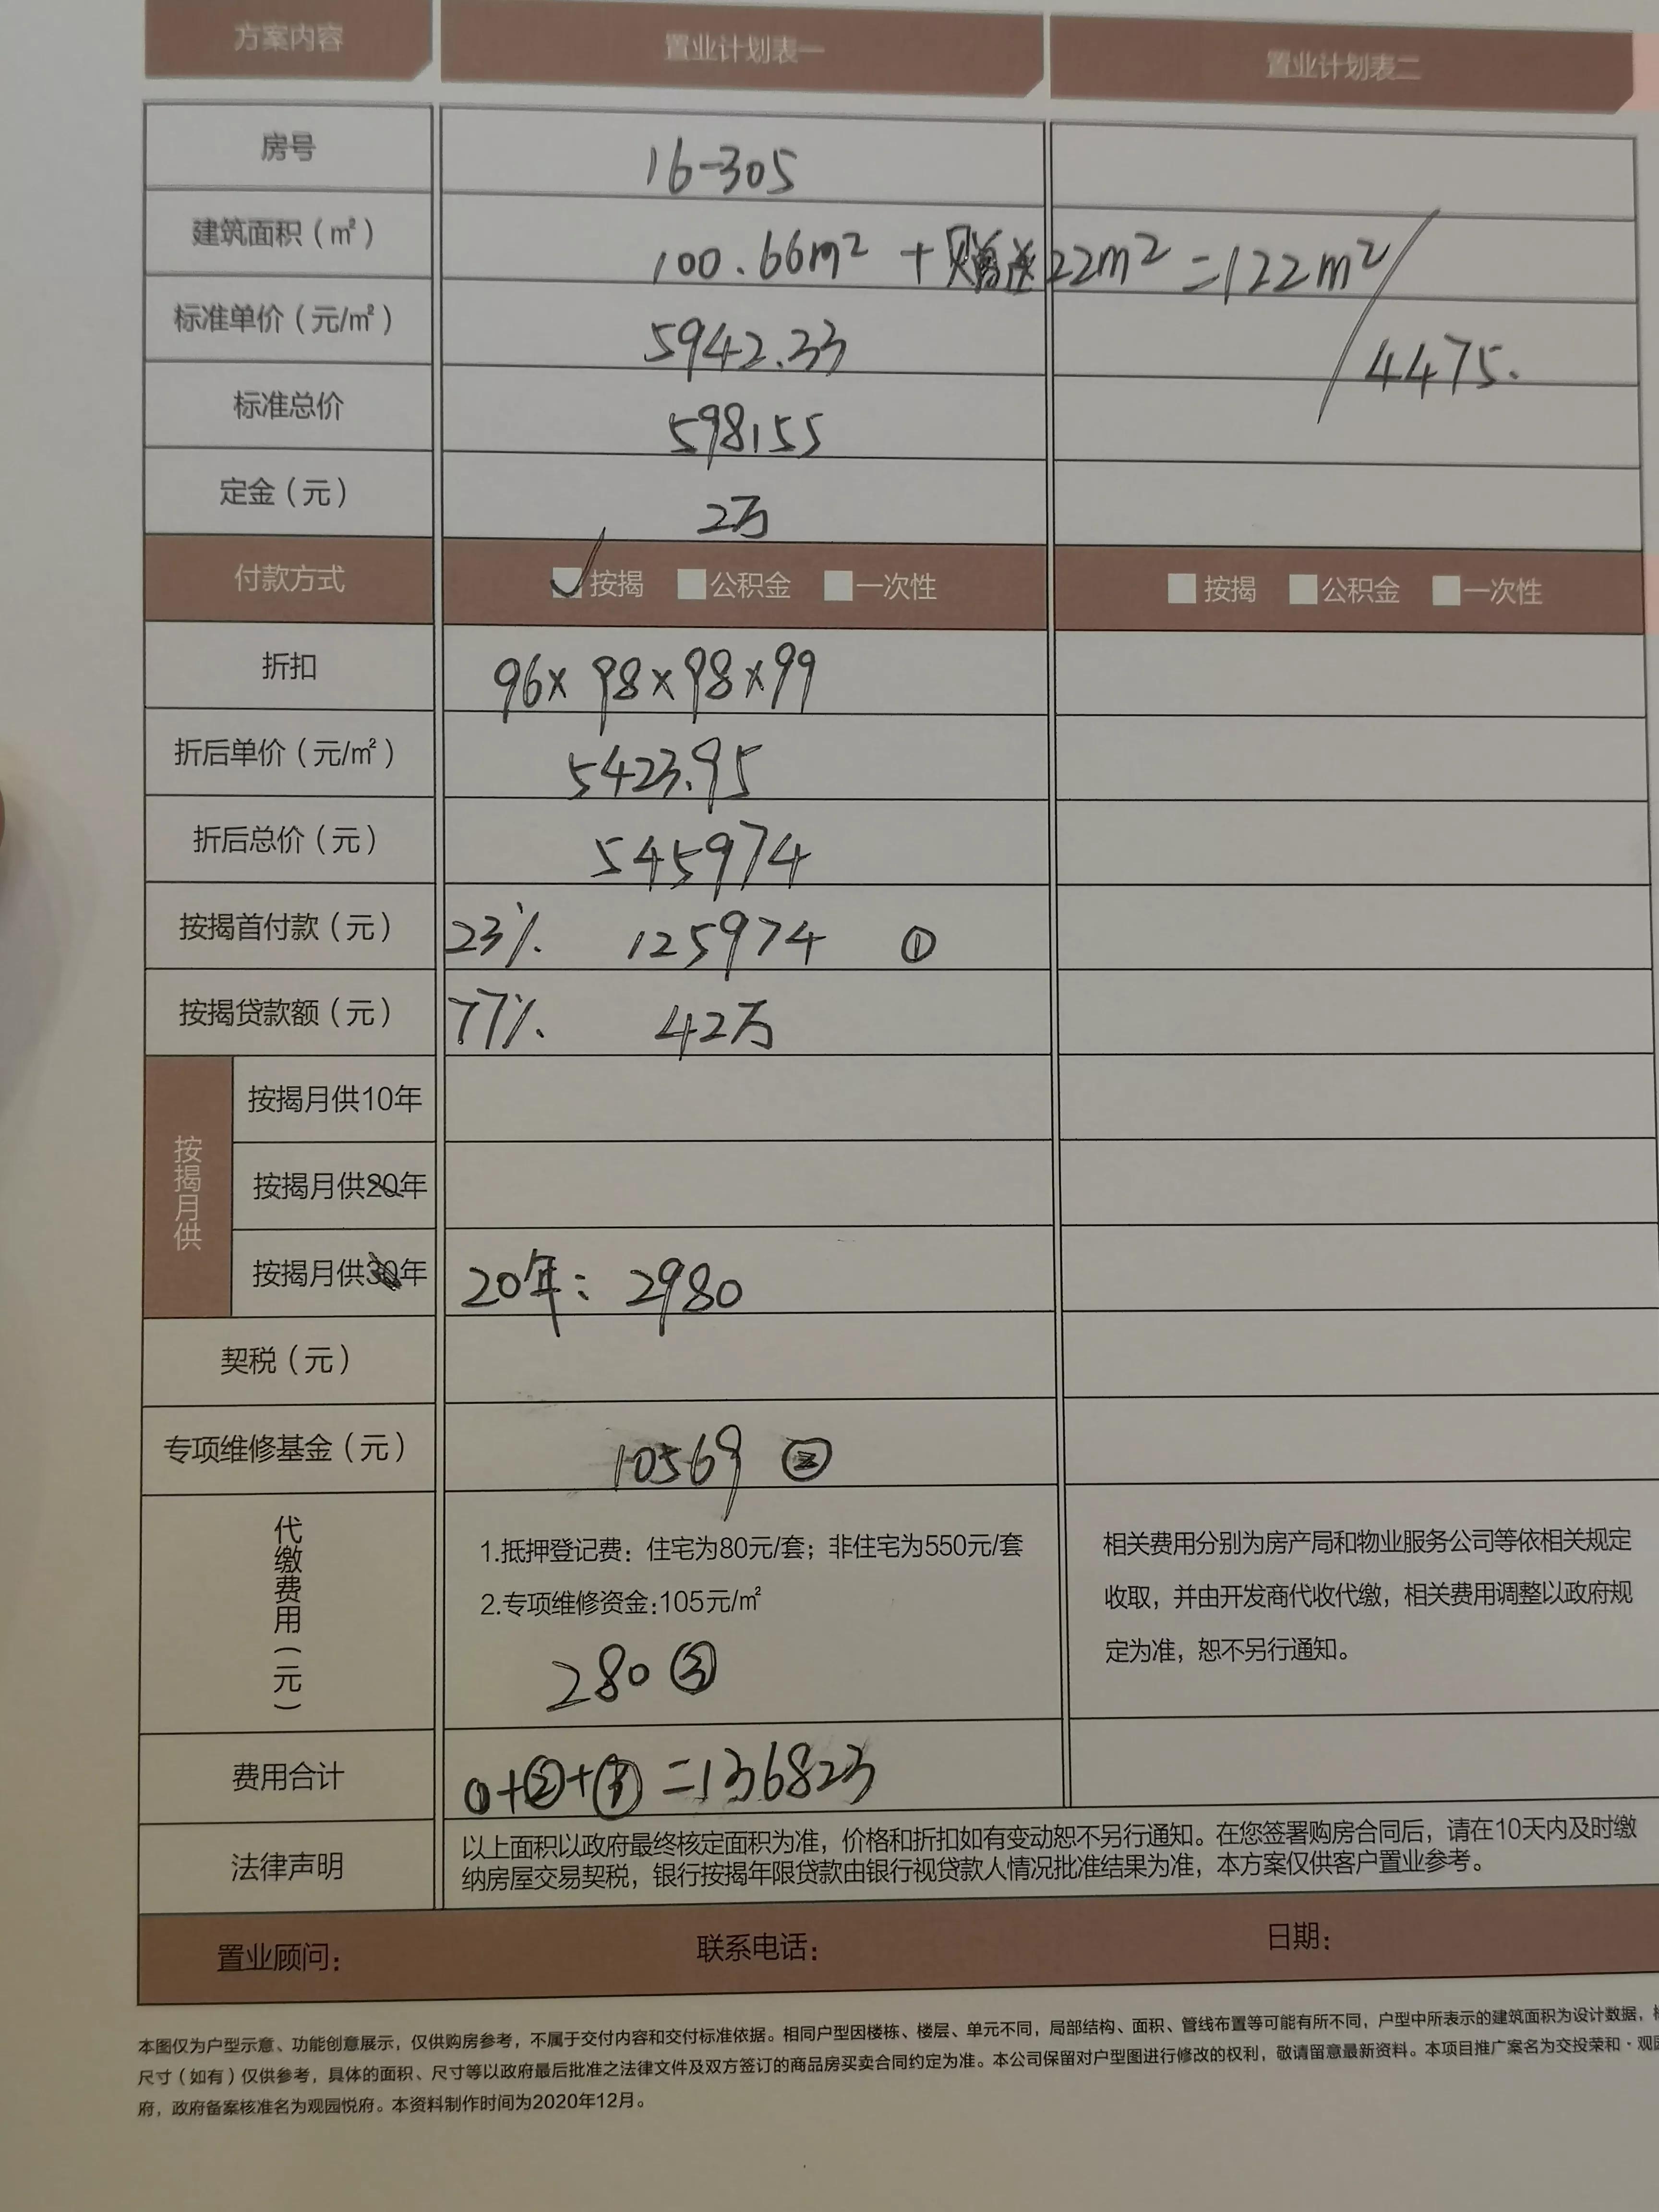 方案内容 置业计划表一 置业计划表二
房号 16-305
建筑面积（㎡） 100.66m² + 赠送22m² =122m²
标准单价（元/㎡） 5942.33 / 4475.
标准总价 598155
定金（元） 2万
付款方式 按揭 公积金 一次性 按揭 公积金 一次性
折扣 96×98×98×99
折后单价（元/㎡） 5423.95
折后总价（元） 545974
按揭首付款（元） 23%. 125974 ①
按揭贷款额（元） 77%. 42万
按揭月供
按揭月供10年
按揭月供20年
按揭月供30年 20年：2980
契税（元）
专项维修基金（元） 10569 ②
代缴费用（元）
1.抵押登记费：住宅为80元/套；非住宅为550元/套
2.专项维修资金:105元/㎡
280 ③
相关费用分别为房产局和物业服务公司等依相关规定
收取，并由开发商代收代缴，相关费用调整以政府规
定为准，恕不另行通知。
费用合计 ①+②+③ =136823
法律声明
以上面积以政府最终核定面积为准，价格和折扣如有变动恕不另行通知。在您签署购房合同后，请在10天内及时缴
纳房屋交易契税，银行按揭年限贷款由银行视贷款人情况批准结果为准，本方案仅供客户置业参考。
置业顾问： 联系电话： 日期：
本图仅为户型示意、功能创意展示，仅供购房参考，不属于交付内容和交付标准依据。相同户型因楼栋、楼层、单元不同，局部结构、面积、管线布置等可能有所不同，户型中所表示的建筑面积为设计数据，
尺寸（如有）仅供参考，具体的面积、尺寸等以政府最后批准之法律文件及双方签订的商品房买卖合同约定为准。本公司保留对户型图进行修改的权利，敬请留意最新资料。本项目推广案名为交投荣和·观园
府，政府备案核准名为观园悦府。本资料制作时间为2020年12月。